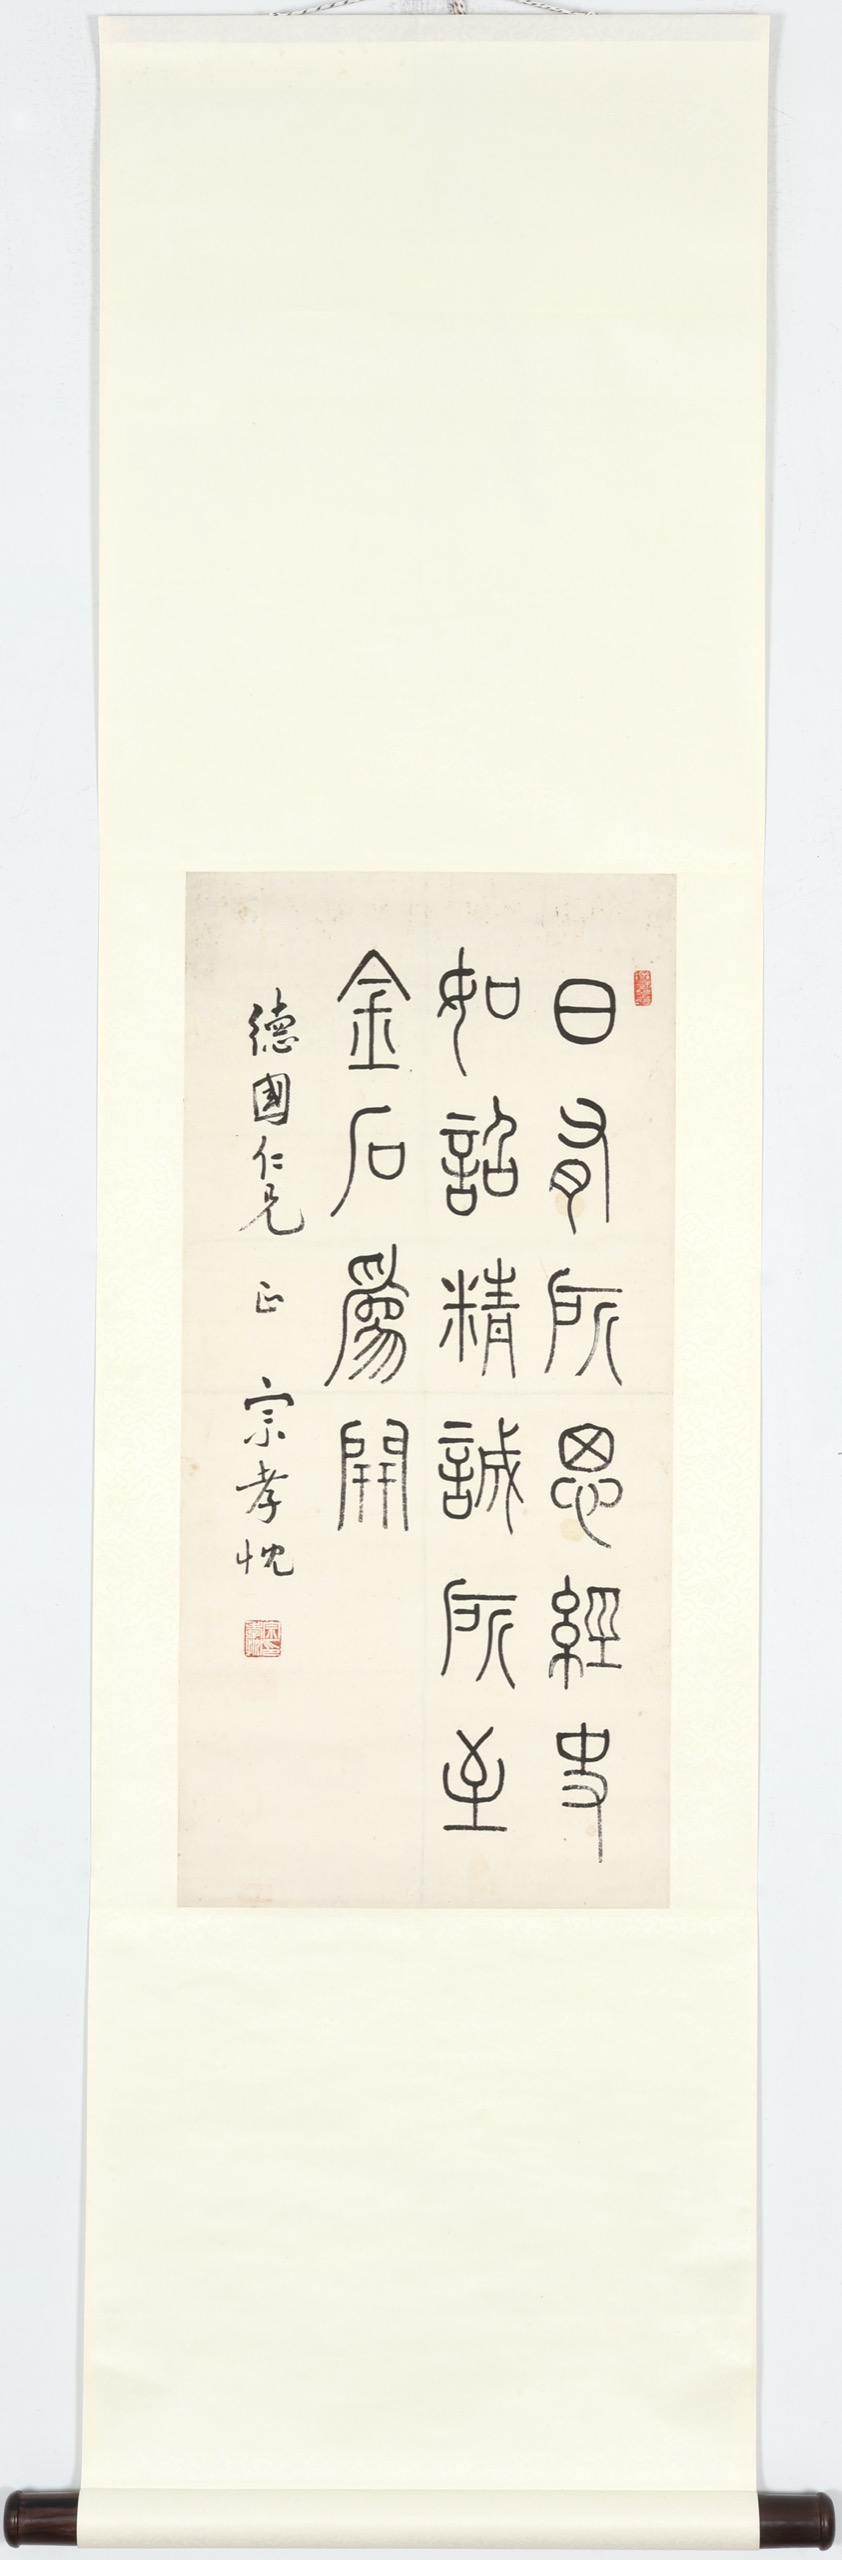 日有所思經史
如詔精誠所至
金石為開
德國仁兄 正 宗孝忱